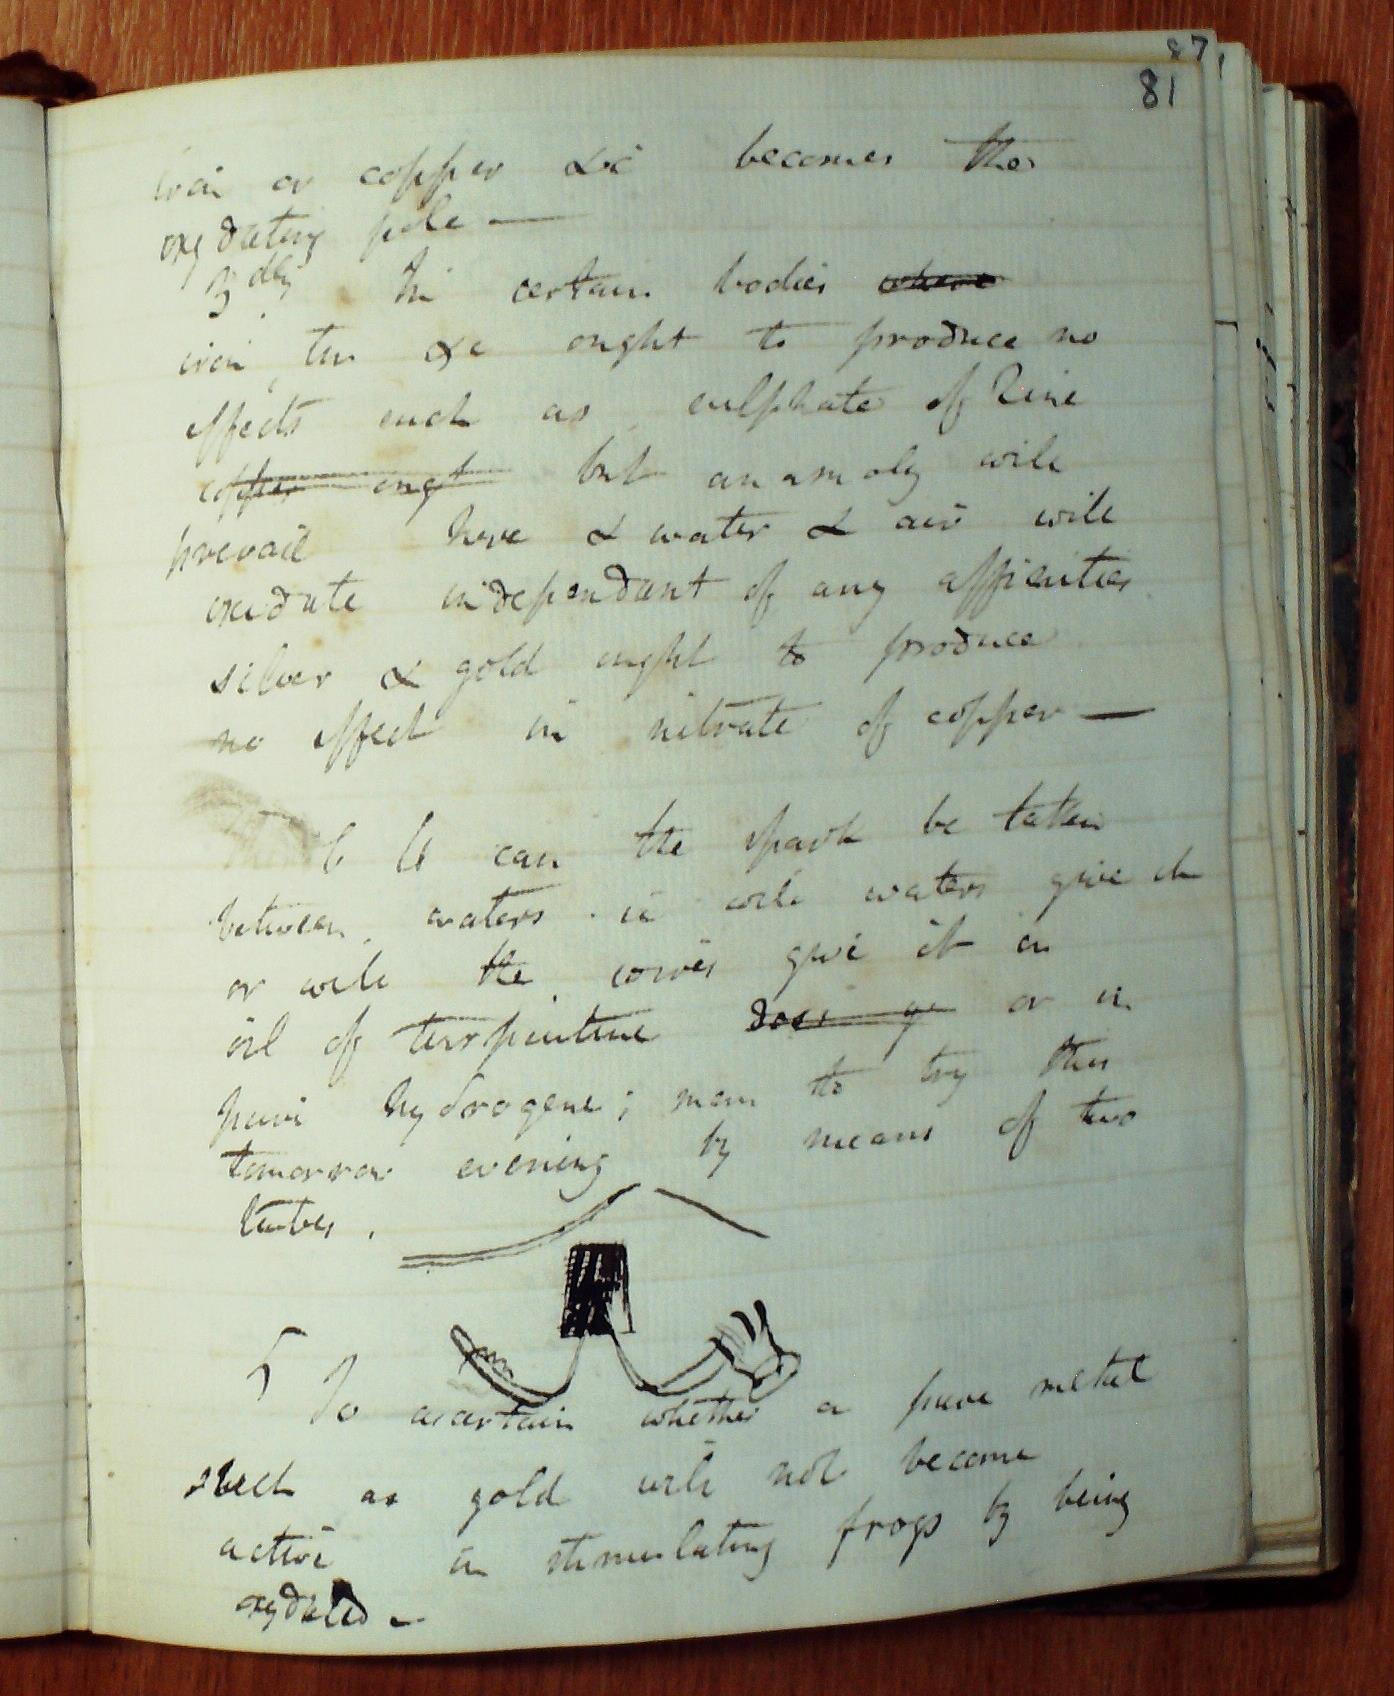 87
81
iron or copper &c becomes the
oxydating pole —
3dly In certain bodies where
iron, tin &c ought to produce no
effects such as sulphate of Zinc
copper ongt but anamoly will
prevail here & water & air will
oxidate independant of any affinities
silver & gold ought to produce
no effect in nitrate of copper —
can the spark be taken
between waters. ie will waters give it
or will the wires give it in
oil of turpentine does ge or in
pure hydrogene; mem to try this
tomorrow evening by means of two
tubes.
5 To ascertain whether a pure metal
such as gold will not become
active in stimulating frogs by being
oxydated –